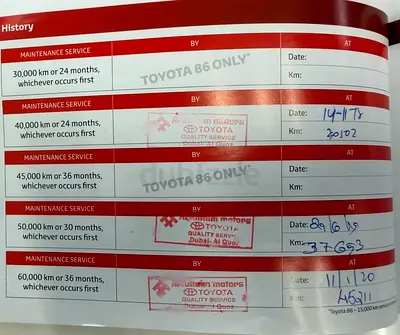 History
MAINTENANCE SERVICE BY AT
30,000 km or 24 months,
whichever occurs first
TOYOTA 86 ONLY*
Date:
Km:
MAINTENANCE SERVICE BY AT
40,000 km or 24 months,
whichever occurs first
TOYOTA
QUALITY SERVICE
Dubai- Al Quoz
Date:
Km: 20102
MAINTENANCE SERVICE BY AT
45,000 km or 36 months,
whichever occurs first
TOYOTA 86 ONLY*
Date:
Km:
MAINTENANCE SERVICE BY AT
50,000 km or 30 months,
whichever occurs first
motors
TOYOTA
QUALITY SERVI
Dubai- Al Quoz
Date:
Km: 37653
MAINTENANCE SERVICE BY AT
60,000 km or 36 months,
whichever occurs first
motors
TOYOTA
QUALITY SERVICE
Date: 11/1/20
Km: 45211
*Toyota 86 – 15,000 km